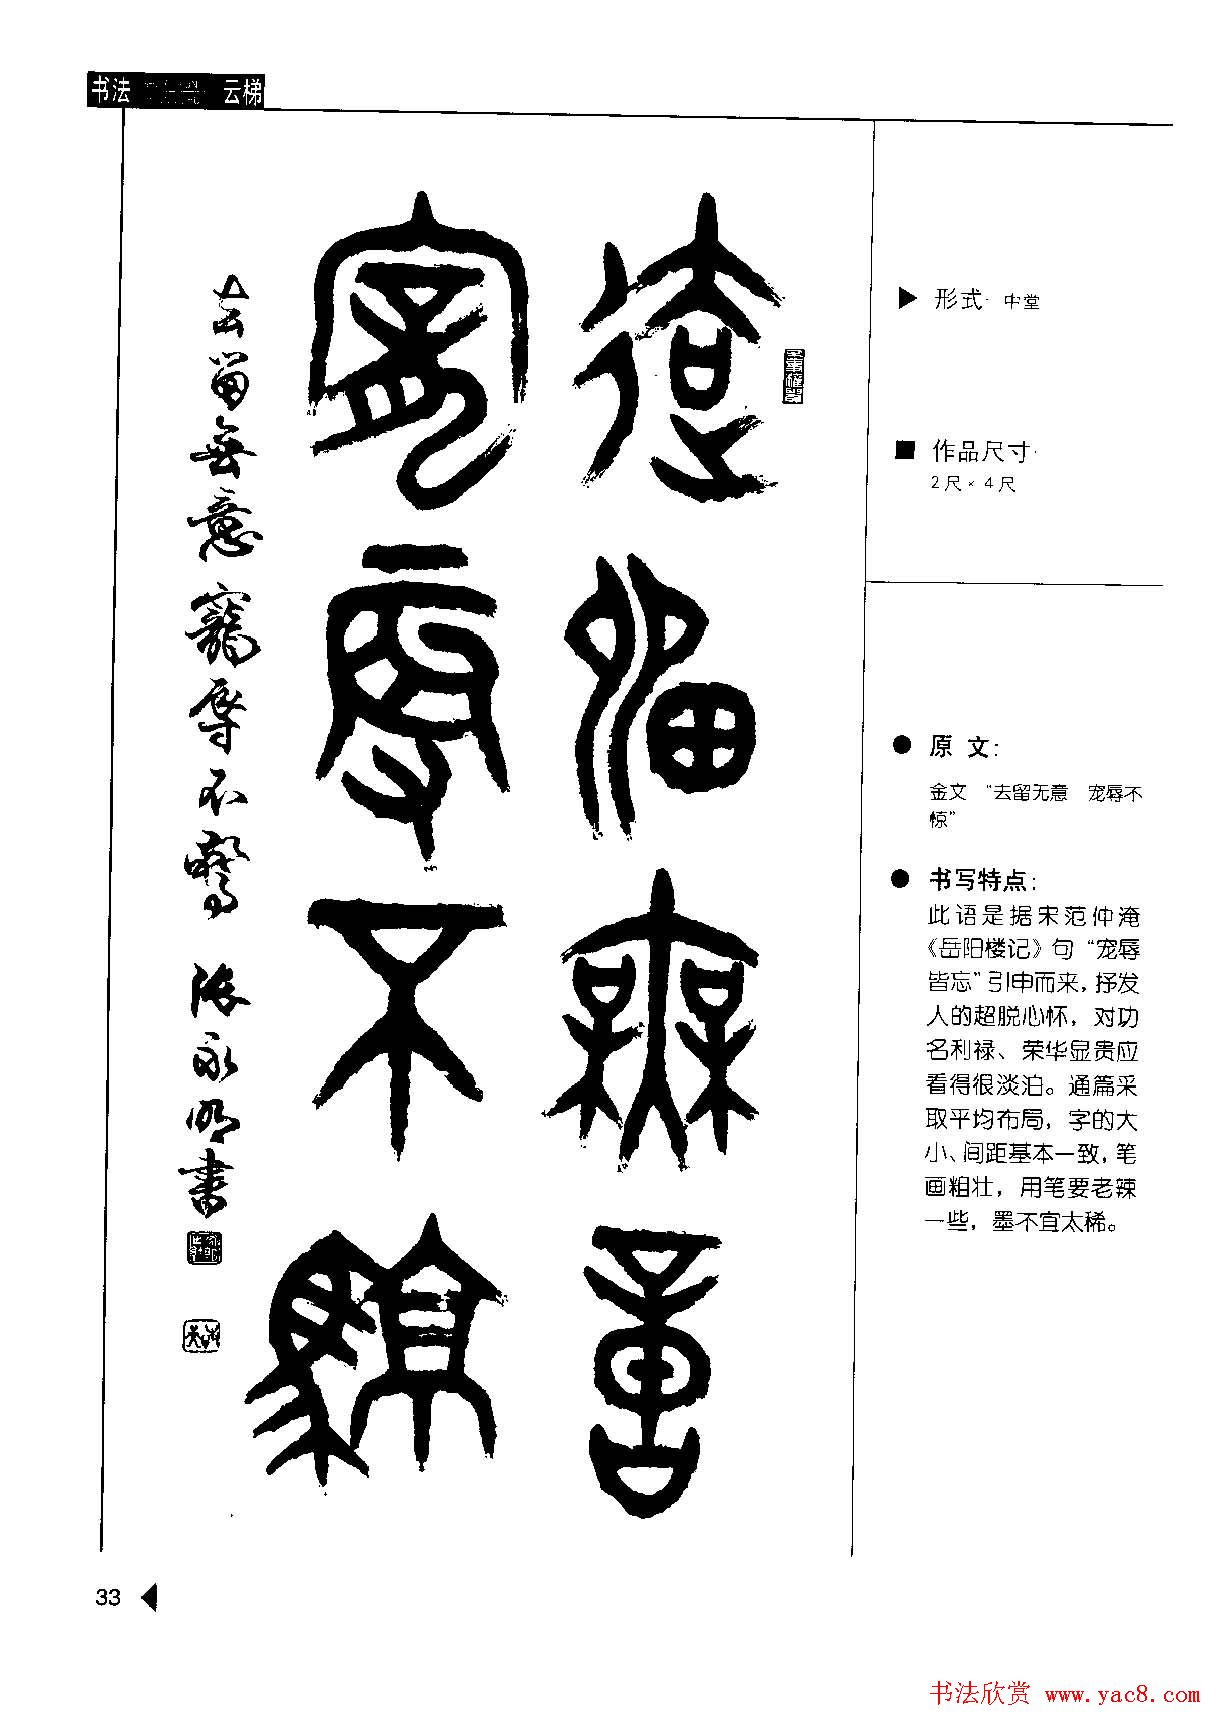 书法 云梯
去留無意
寵辱不驚
去留無意寵辱不驚 張永明書
形式· 中堂
作品尺寸·
2尺×4尺
原 文:
金文 “去留无意 宠辱不
惊”
书写特点:
此语是据宋范仲淹
《岳阳楼记》句“宠辱
皆忘”引申而来,抒发
人的超脱心怀，对功
名利禄、荣华显贵应
看得很淡泊。通篇采
取平均布局，字的大
小、间距基本一致,笔
画粗壮，用笔要老辣
一些，墨不宜太稀。
33
书法欣赏 www.yac8.com